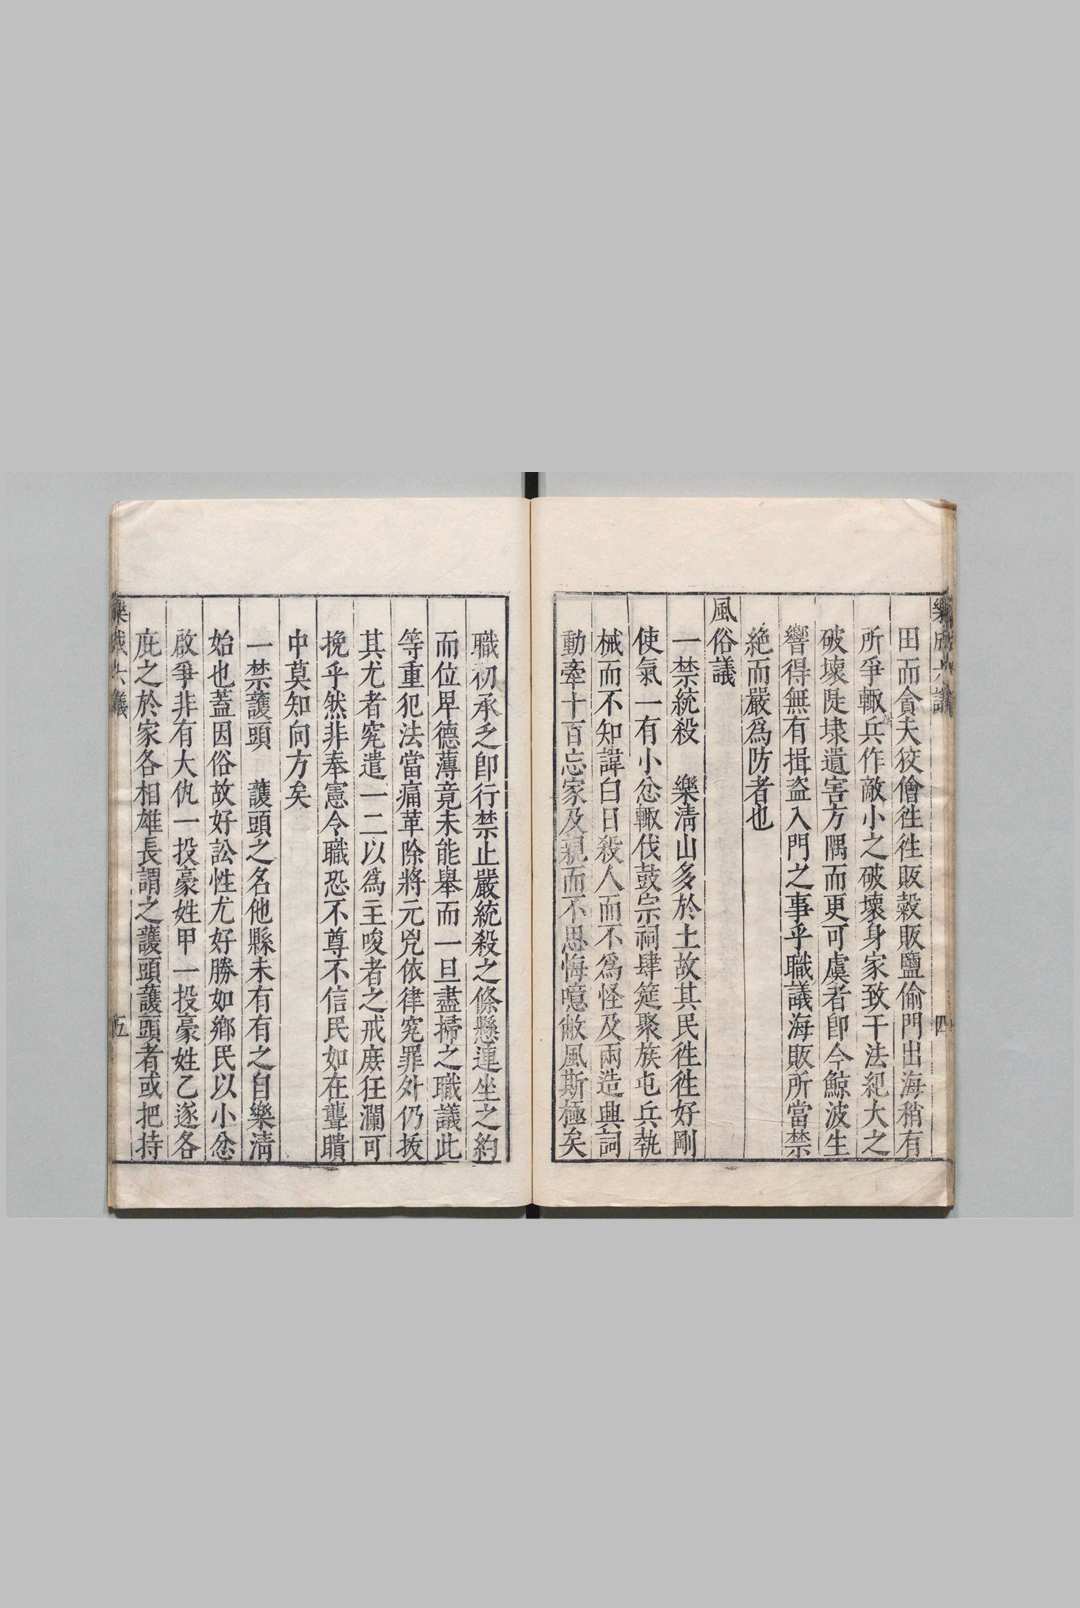 田而貪夫狡儈徃徃販穀販鹽偷門出海稍有
所爭輙兵作敵小之破壞身家致干法紀大之
破壞陡埭遺害方隅而更可虞者卽今鯨波生
響得無有揖盜入門之事乎職議海販所當禁
絶而嚴爲防者也
風俗議
一禁統殺　樂清山多於土故其民徃徃好剛
使氣一有小忿輙伐鼓宗祠肆筵聚族屯兵執
械而不知諱白日殺人而不爲怪及兩造典詞
動牽十百忘家及親而不思悔噫敝風斯極矣
職初承乏卽行禁止嚴統殺之條懸連坐之約
而位卑德薄竟未能舉而一旦盡掃之職議此
等重犯法當痛革除將元兇依律究罪外仍拔
其尤者究遣一二以爲主唆者之戒庻狂瀾可
挽乎然非奉憲令職恐不尊不信民如在聾聵
中莫知向方矣
一禁護頭　護頭之名他縣未有有之自樂清
始也蓋因俗故好訟性尤好勝如鄉民以小忿
啟爭非有大仇一投豪姓甲一投豪姓乙遂各
庇之於家各相雄長謂之護頭護頭者或把持
五